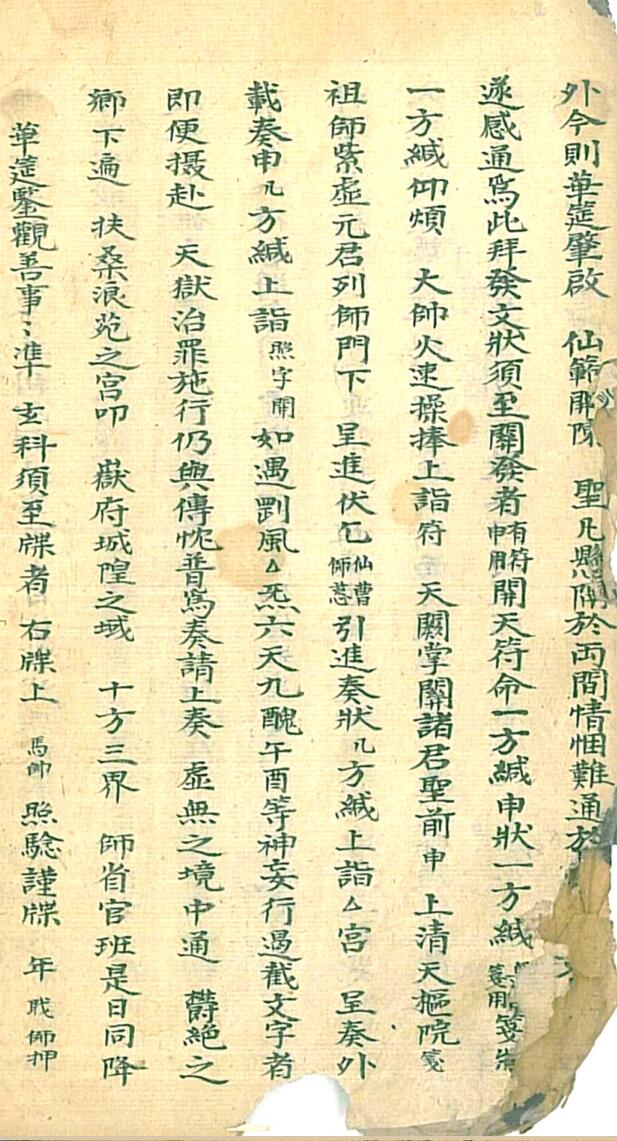 外今則華筵肇啟 仙範開陳 聖凡懸隔於兩間情悃難通於
遂感通為此拜發文狀須至關發者有符申用開天符命一方緘申狀一方緘 箋用箋
一方緘仰煩 大帥火速操捧上詣符 天關掌關諸君聖前申 上清天樞院箋
祖師紫虛元君列師門下 呈進伏乞仙曹師慈引進奏狀几方緘上詣厶宮 呈奏外
載奏申几方緘上詣照字開如遇罡風厶炁六天九醜午酉等神妄行遏截文字者
即便摄赴 天獄治罪施行仍與傳忱普為奏請上奏 虛無之境中通 欝絕之
鄉下遍 扶桑浪苑之宮叩 嶽府城隍之域 十方三界 師省官班是日同降
華筵鑒觀善事〻準 玄科須至牒者 右牒上 馬帥 照驗謹牒 年 師押